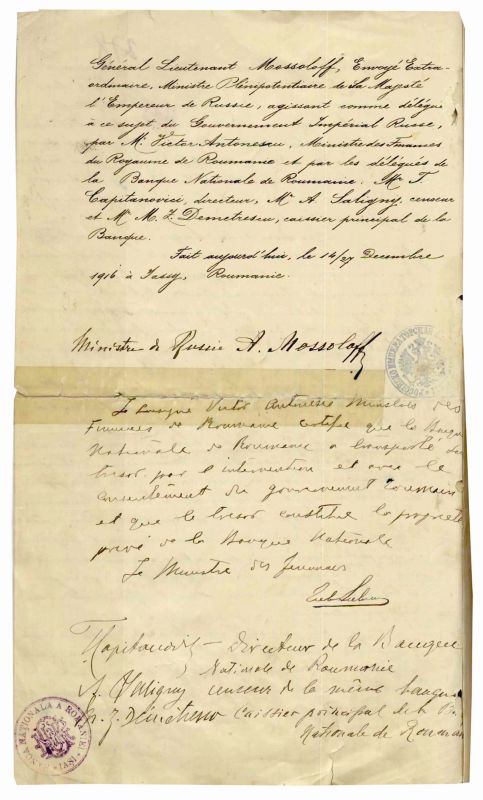 Général Lieutenant Mossoloff, Envoyé Extra-
ordinaire, Ministre Plénipotentiaire de Sa Majesté
l'Empereur de Russie, agissant comme délégué
à ce sujet du Gouvernement Impérial Russe,
par Mr. Victor Antonescu, Ministre des Finances
du Royaume de Roumanie et par les délégués de
la Banque Nationale de Roumanie. Mr T.
Capitanovici, directeur, Mr A. Saligny, censeur
et Mr M. Z. Demetrescu, caissier principal de la
Banque.
Fait aujourd'hui, le 14/27 Decembre
1916 à Jassy, Roumanie.
Ministre de Russie A. Mossoloff
Victor Antonescu Ministre des
Finances de Roumanie certifie que la Banque
Nationale de Roumanie a transporté
tresor par l'intervention et avec le
consentement du gouvernement roumain
et que le tresor constitue la propriete
privé de la Banque Nationale
Le Ministre des finances
Directeur de la Banque
Nationale de Roumanie
A. Saligny censeur de la même banque
M. Z. Demetrescu caissier principal de la B.
Nationale de Roumanie
BANCA NATIONALA A ROMANIEI
IASI